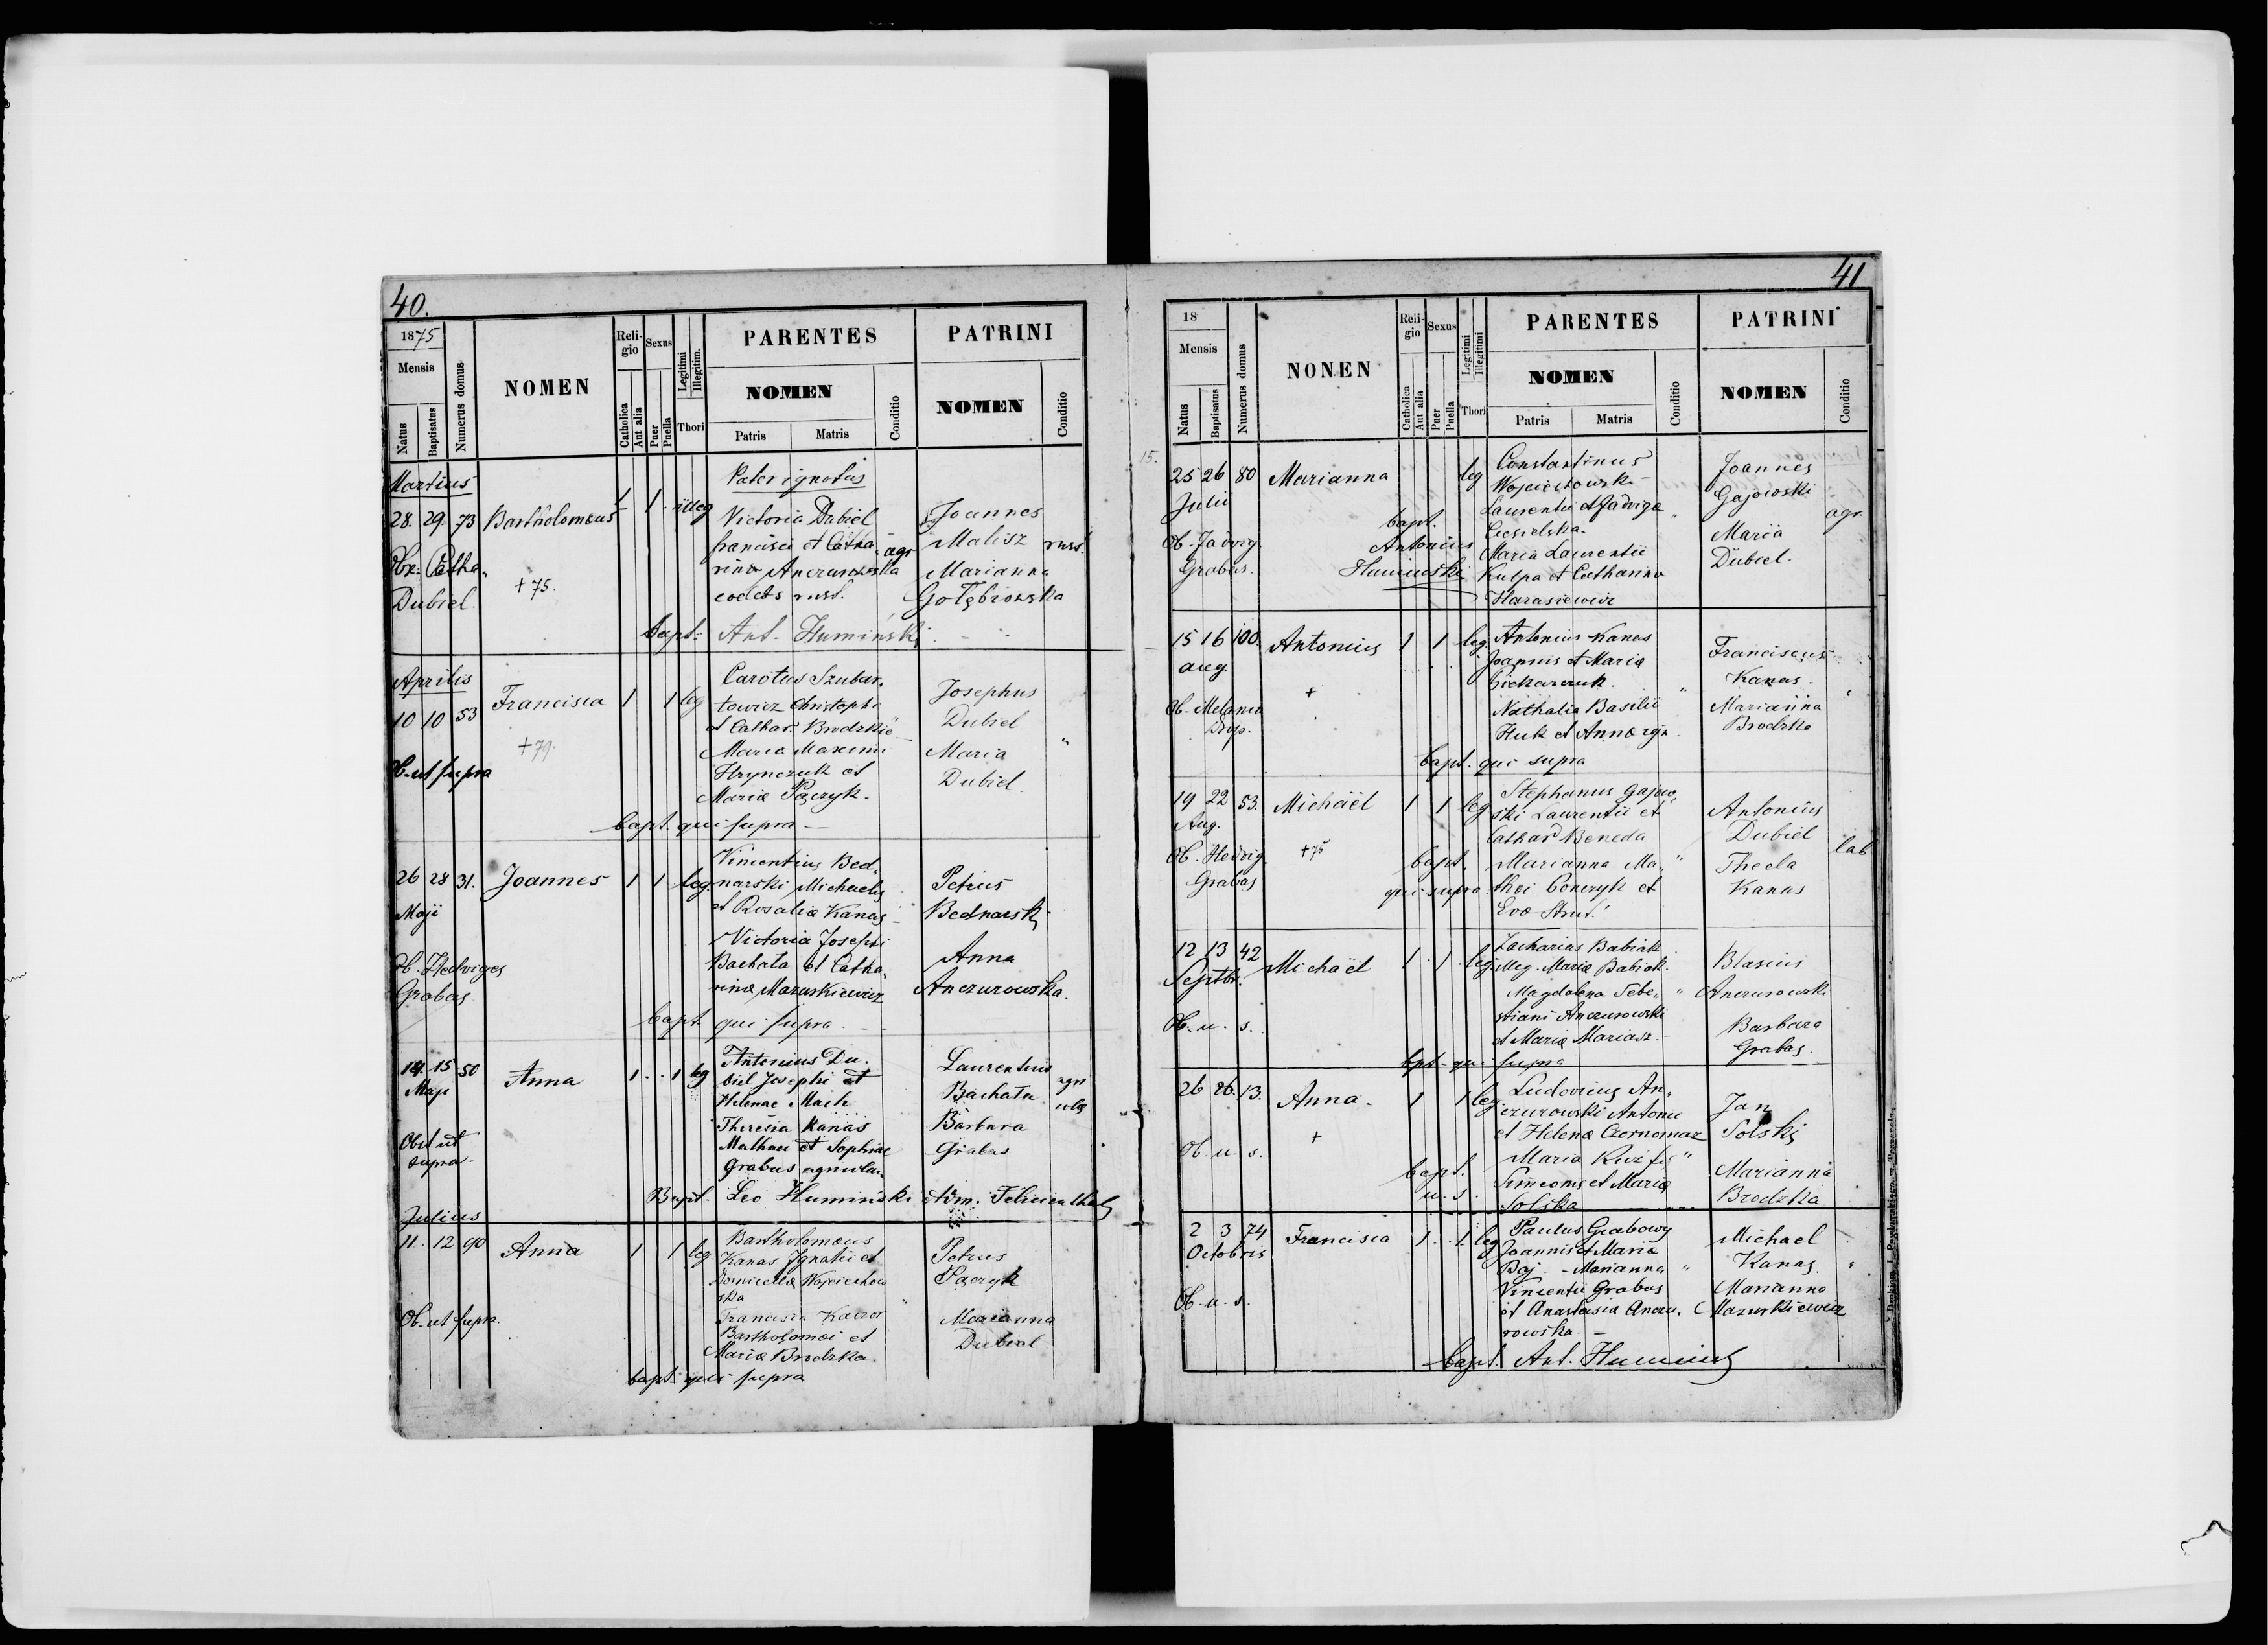 40.
1875
Mensis
Natus
Baptisatus
Numerus domus
NOMEN
Reli-
gio
Catholica
Aut alia
Sexus
Puer
Puella
Legitimi
Illegitim.
Thori
PARENTES
NOMEN
Patris
Matris
Conditio
PATRINI
NOMEN
Conditio
Martius
28. 29. 73 Bartholomæus 1 1 illeg
Obx: Catha„
Dubiel.
+ 75.
Pater ignotus
Victoria Dubiel
francisci et Catha„
rina Anczurowska
agr
Joannes
Malisz
Marianna
Gołębiowska
rust.
bapt: Ant. Humiński
Aprilis
10 10 53 Francisca 1 1 leg
+ 79.
Ob. ut supra
Carolus Szubar„
towicz Christophi
et Cathar. Brodzkie
Maria Maximi
Hrynczuk et
Maria Pączyk.
Josephus
Dubiel
Maria
Dubiel.
"
bapt. qui supra —
26 28 31. Joannes 1 1 leg.
Maji
Ob. Hedviges
Grabas
Vincentius Bed„
narski Michaelis
et Rosalia Kanas
Victoria Josephi
Bachata et Catha„
rina Mazurkiewicz
Petrus
Bednarski
Anna
Anczurowska.
bapt. qui supra.
14. 15 50 Anna 1 1 leg
Maji
Obst ut
supra.
Antonius Du„
biel Josephi et
Helenae Mach
Theresia Kanas
Mathaei et Sophiae
Grabas agricolae
Laurentius
Bachata
Barbara
Grabas
agri
colae
Bapt. Leo Humiński Adm. Felicienthal
Julius
11. 12 90 Anna 1 1 leg.
Ob. ut supra.
Bartholomæus
Kanas Ignatii et
Domicella Wojciechow
ska
Francisca Kaczor
Bartholomæi et
Maria Brodzka.
"
Petrus
Pączyk
Marianna
Dubiel
bapt. qui supra
41
18
Mensis
Natus
Baptisatus
Numerus domus
NONEN
Reli-
gio
Catholica
Aut alia
Sexus
Puer
Puella
Legitimi
Illegitimi
Thori
PARENTES
NOMEN
Patris
Matris
Conditio
PATRINI
NOMEN
Conditio
15.
25 26 80 Marianna leg
Julii
Ob. Jadvig.
Grabas.
bapt.
Antonius
Humiński
Constantinus
Wojciechowski
Laurentii et Jadviga
Ciesielska.
Maria Laurentii
Kulpa et Catharina
Harasiewicz
"
Joannes
Gajowski
Maria
Dubiel.
agr.
15 16 100. Antonius 1 1 leg.
aug.
Ob. Melania
+
Antonius Kanas
Joannis et Maria
Nathalia Basilii
Huk et Anna
"
Franciscus
Kanas.
Marianna
Brodzka
bapt. qui supra
19 22 53. Michaël 1 1 leg
Aug.
Ob. Hedvig.
Grabas
+ 75
bapt.
qui supra
Stephanus Gajow„
ski Laurentii et
Cathar. Beneda
Marianna Ma„
thei Conczyk et
"
Antonius
Dubiel
Thecla
Kanas
lab
12 13 42 Michaël 1 1 leg
Septbr.
Ob. u. s.
Zacharias Babiak
illeg. Maria Babiak.
Magdalena Seba„
stiani Anczurowski
et Maria Mariasz.
"
Blasius
Anczurowski
Barbara
Grabas.
bpt. qui supra
26 26. 13. Anna. 1 1 leg.
Ob. u. s.
+
bapt.
u. s.
Ludovicus An„
czurowski Antonii
et Helena Czornomaz
Maria
Simeonis et Maria
Solska
"
Jan
Solski
Marianna
Brodzka
2 3 74 Francisca 1 1 leg
Octobris
Ob. u. s.
Paulus Grabowy
Joannis et Maria
Baj - Marianna
Vincentii Grabas
et Anastasia Anczu„
rowska —
"
Michael
Kanas
Marianna
Mazurkiewicz
"
bapt. Ant. Humiński